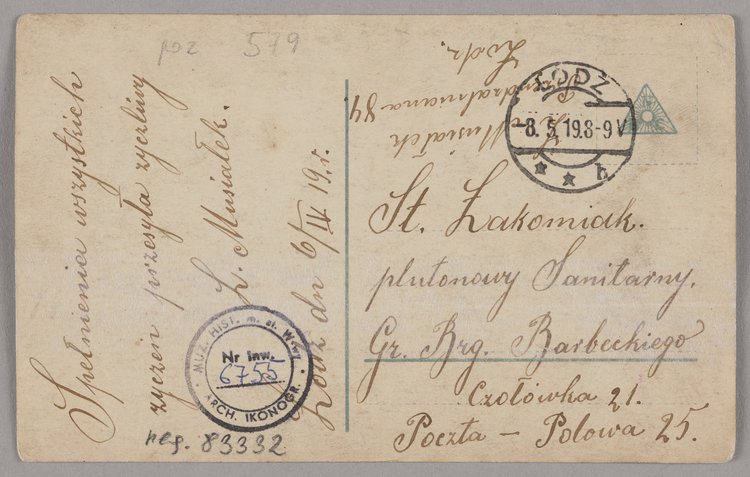 poz 579
Spełnienia wszystkich
życzeń przesyła życzliwy
L. Musiałek.
Łódź dn 6/IV 19 r.
MUZ. HIST. m. st. W-wy
Nr inw.
6755
ARCH. IKONOGR.
neg. 83332
Musiałek
84
Łódź.
ŁÓDZ
-8.5.19.8-9V
h
St. Łakomiak.
plutonowy Sanitarny.
Gr. Brg. Barbeckiego
Czołówka 21.
Poczta – Polowa 25.